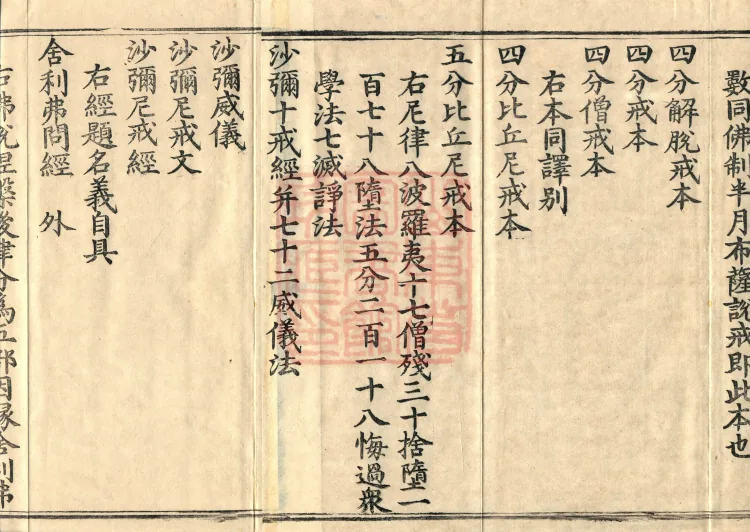 數同佛制半月布薩說戒即此本也
四分解脫戒本
四分戒本
四分僧戒本
右本同譯別
四分比丘尼戒本
五分比丘尼戒本
右尼律八波羅夷十七僧殘三十捨墮二
百七十八墮法五分二百一十八悔過衆
學法七滅諍法
沙彌十戒經并七十二威儀法
沙彌威儀
沙彌尼戒文
沙彌尼戒經
右經題名義自具
舍利弗問經 外
右佛說涅槃後律分為五部因緣舍利弗